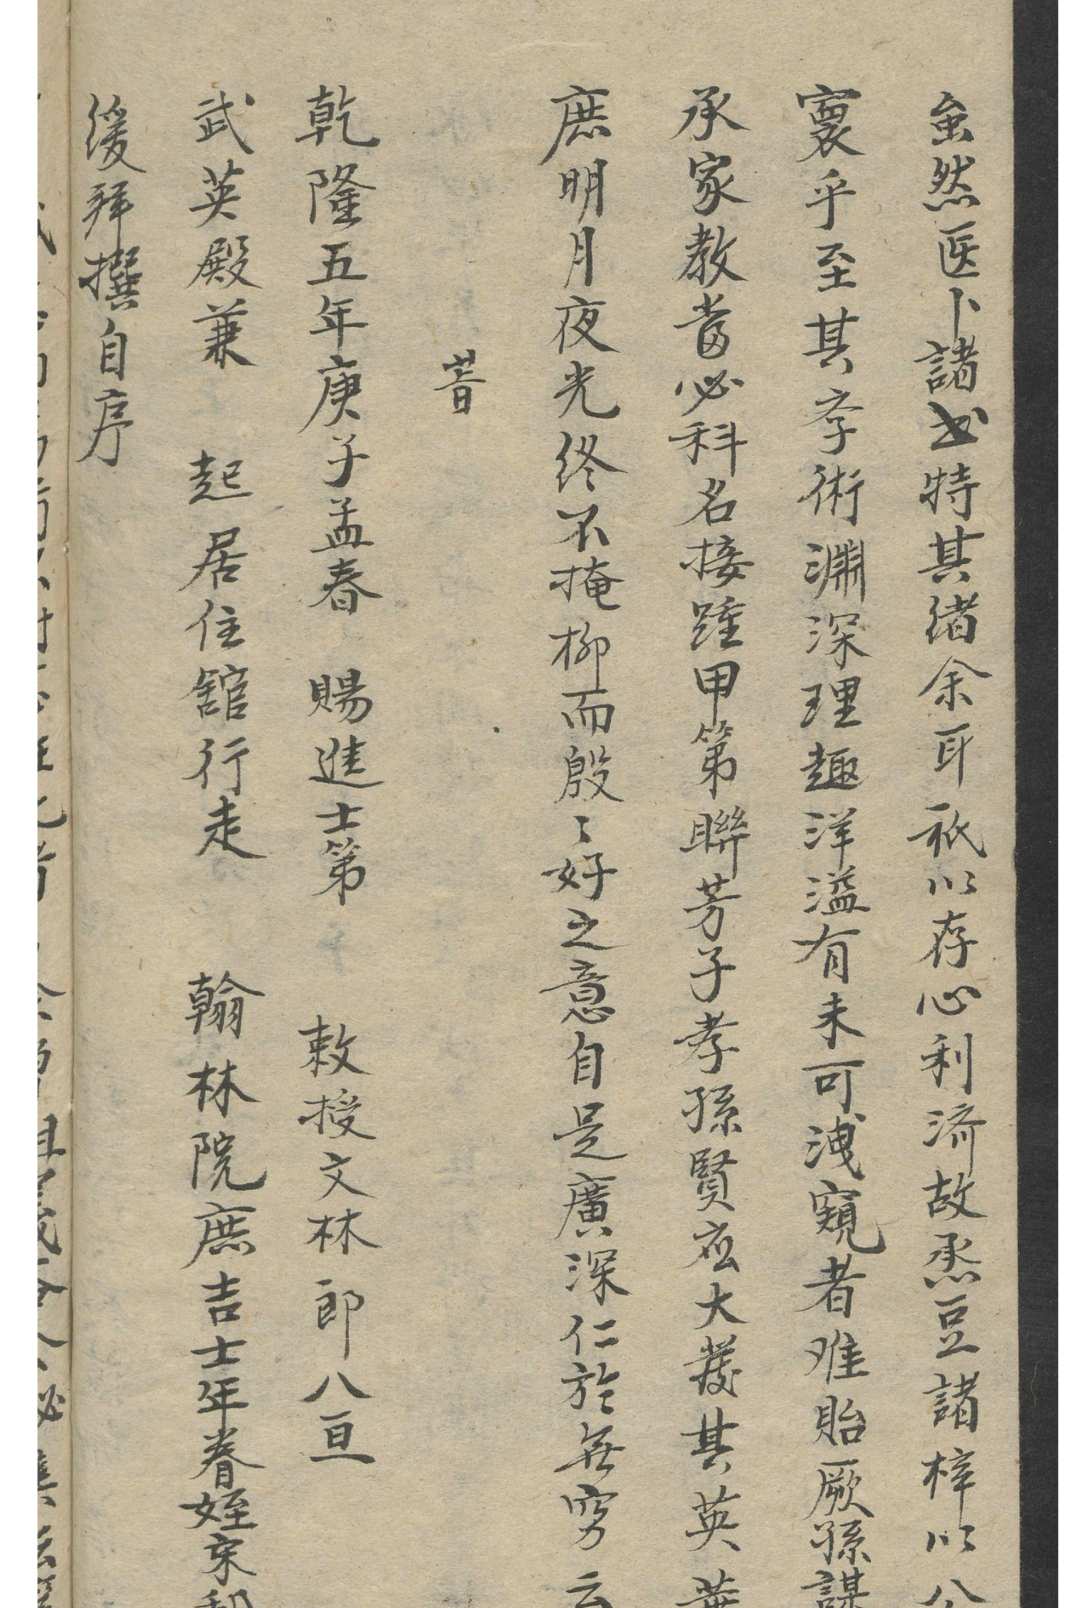 虽然医卜諸书特其绪余耳祇以存心利济故悉豆諸梓以公
寰乎至其孝術淵深理趣洋溢有未可洩窺者难貽厥孫謀
承家教當必科名接踵甲第聯芳子孝孫賢应大发其英華
庶明月夜光终不掩柳而殷〻好之意自是廣深仁於无穷云
旹
乾隆五年庚子孟春 賜進士第 敕授文林郎八亘
武英殿兼 起居住舘行走 翰林院庶吉士年眷姪宋
缓拜撰自序